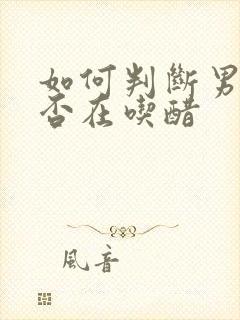 如何判斷男
否在喫醋
風音